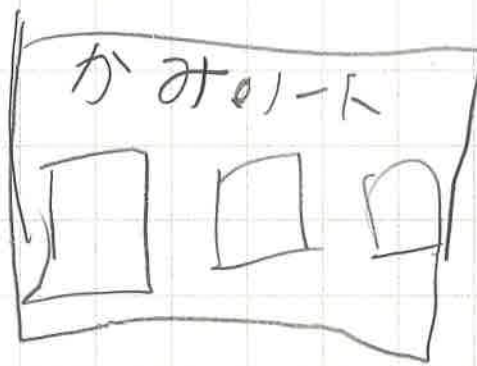 かみノート